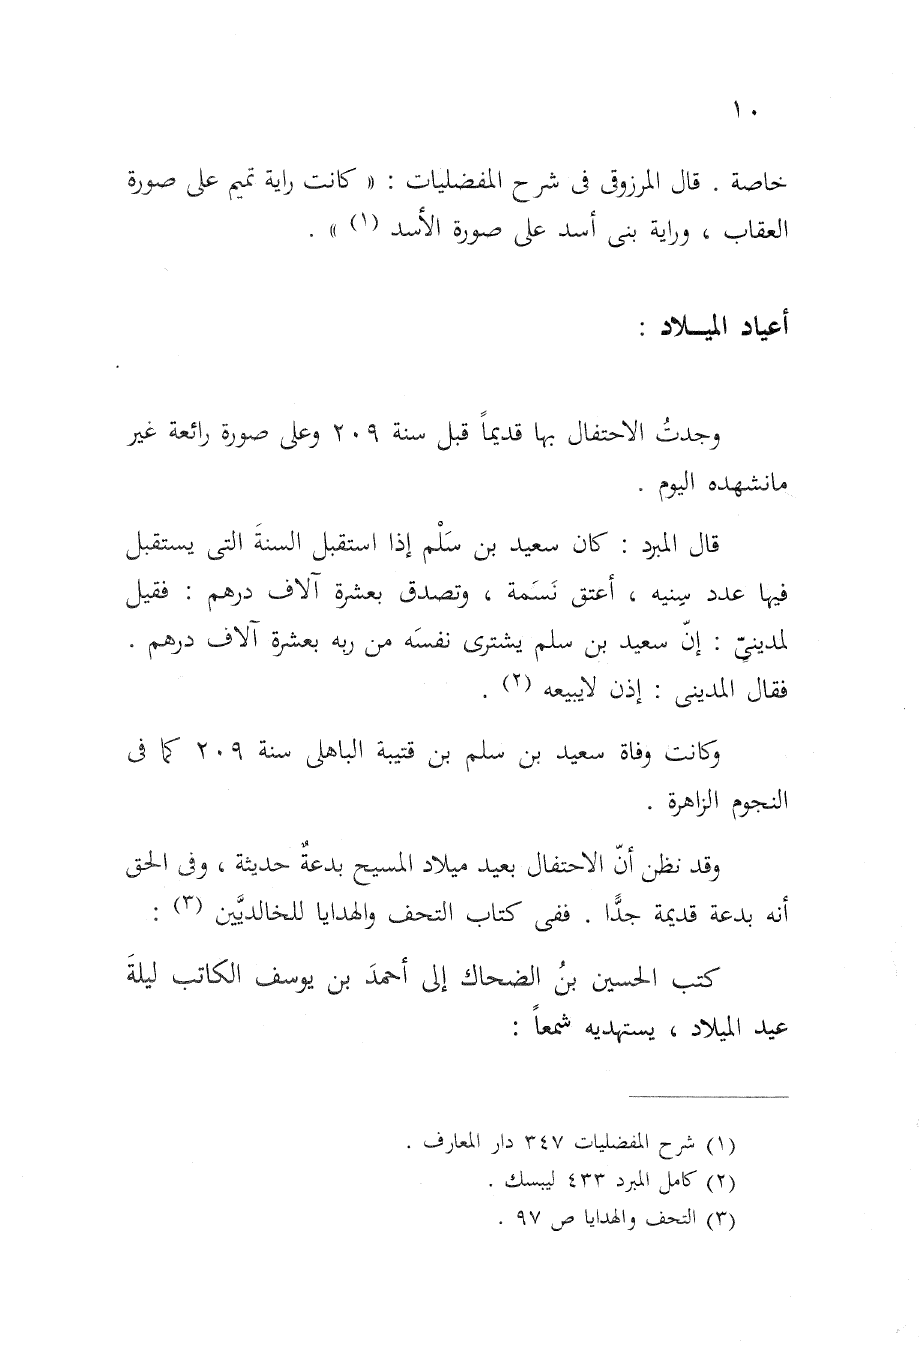 ١٠
خاصة . قال المرزوقى فى شرح المفضليات : « كانت راية تميم على صورة
العقاب ، وراية بنى أسد على صورة الأسد (١) » .
أعياد الميـلاد :
وجدتُ الاحتفال بها قديماً قبل سنة ٢٠٩ وعلى صورة رائعة غير
مانشهده اليوم .
قال المبرد : كان سعيد بن سَلْم إذا استقبل السنةَ التى يستقبل
فيها عدد سِنِيه ، أعتق نَسَمة ، وتصدق بعشرة آلاف درهم : فقيل
لمدينىّ : إنّ سعيد بن سلم يشترى نفسَه من ربه بعشرة آلاف درهم .
فقال المدينى : إذن لايبيعه (٢) .
وكانت وفاة سعيد بن سلم بن قتيبة الباهلى سنة ٢٠٩ كما فى
النجوم الزاهرة .
وقد نظن أنّ الاحتفال بعيد ميلاد المسيح بدعةٌ حديثة ، وفى الحق
أنه بدعة قديمة جدًّا . ففى كتاب التحف والهدايا للخالديَّين (٣) :
كتب الحسين بنُ الضحاك إلى أحمدَ بن يوسف الكاتب ليلةَ
عيد الميلاد ، يستهديه شمعاً :
(١) شرح المفضليات ٣٤٧ دار المعارف .
(٢) كامل المبرد ٤٣٣ ليبسك .
(٣) التحف والهدايا ص ٩٧ .